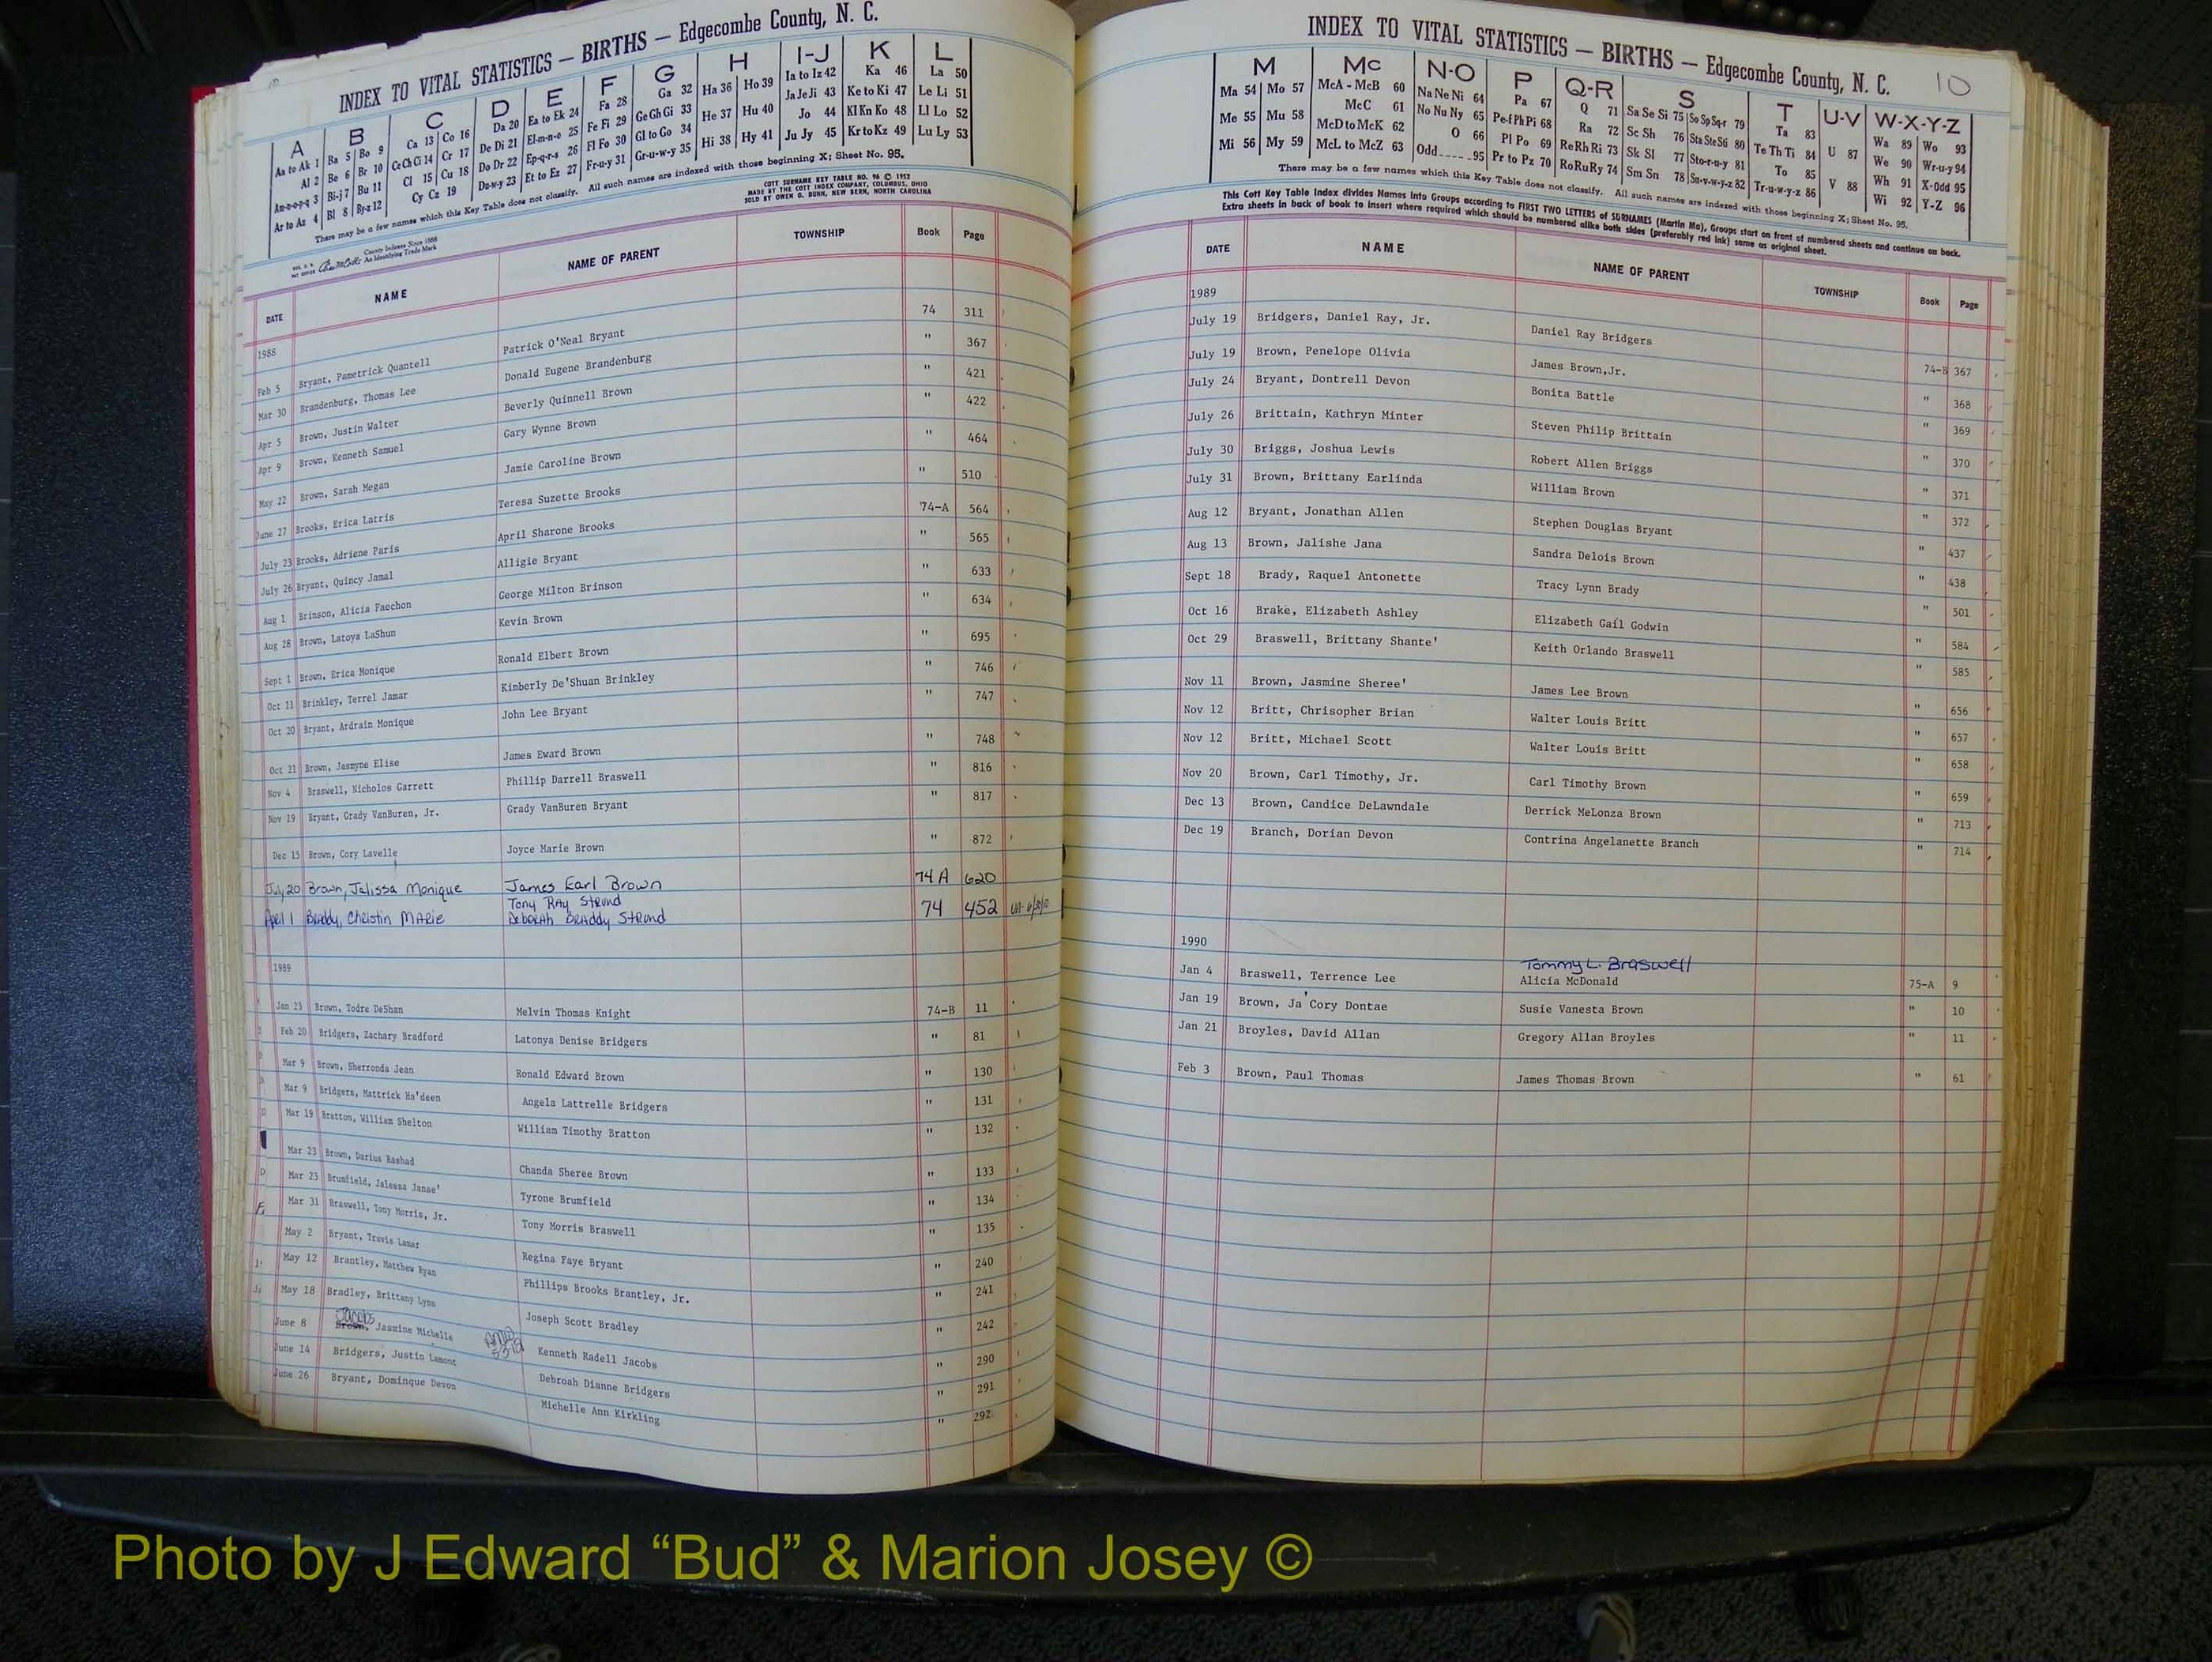 INDEX TO VITAL STATISTICS — BIRTHS — Edgecombe County, N. C.
A B C D E F G H I-J K L
Aa to Ak 1 Ba 5 Bo 9 Ca 13 Co 16 Da 20 Ea to Ek 24 Fa 28 Ga 32 Ha 36 Ho 39 Ia to Iz 42 Ka 46 La 50
Al 2 Be 6 Br 10 Ce Ch Ci 14 Cr 17 De Di 21 El-m-n-o 25 Fe Fi 29 Ge Gh Gi 33 He 37 Hu 40 Ja Je Ji 43 Ke to Ki 47 Le Li 51
Am-n-o-p-q 3 Bi-j 7 Bu 11 Cl 15 Cu 18 Do Dr 22 Ep-q-r-s 26 Fl Fo 30 Gl to Go 34 Hi 38 Hy 41 Jo 44 Kl Kn Ko 48 Ll Lo 52
Ar to Az 4 Bl 8 By-z 12 Cy Cz 19 Du-w-y 23 Et to Ez 27 Fr-u-y 31 Gr-u-w-y 35 Ju Jy 45 Kr to Kz 49 Lu Ly 53
There may be a few names which this Key Table does not classify. All such names are indexed with those beginning X; Sheet No. 95.
COTT SURNAME KEY TABLE NO. 96 © 1952
MADE BY THE COTT INDEX COMPANY, COLUMBUS, OHIO
SOLD BY OWEN G. DUNN, NEW BERN, NORTH CAROLINA
County Indexes Since 1888
An Identifying Trade Mark
DATE NAME NAME OF PARENT TOWNSHIP Book Page
1988
Feb 5 Bryant, Pametrick Quantell Patrick O'Neal Bryant 74 311
Mar 30 Brandenburg, Thomas Lee Donald Eugene Brandenburg " 367
Apr 5 Brown, Justin Walter Beverly Quinnell Brown " 421
Apr 9 Brown, Kenneth Samuel Gary Wynne Brown " 422
May 22 Brown, Sarah Megan Jamie Caroline Brown " 464
June 27 Brooks, Erica Latris Teresa Suzette Brooks " 510
July 23 Brooks, Adriene Paris April Sharone Brooks 74-A 564
July 26 Bryant, Quincy Jamal Alligie Bryant " 565
Aug 1 Brinson, Alicia Faechon George Milton Brinson " 633
Aug 28 Brown, Latoya LaShun Kevin Brown " 634
Sept 1 Brown, Erica Monique Ronald Elbert Brown " 695
Oct 11 Brinkley, Terrel Jamar Kimberly De'Shuan Brinkley " 746
Oct 20 Bryant, Ardrain Monique John Lee Bryant " 747
Oct 21 Brown, Jasmyne Elise James Eward Brown " 748
Nov 4 Braswell, Nicholos Garrett Phillip Darrell Braswell " 816
Nov 19 Bryant, Grady VanBuren, Jr. Grady VanBuren Bryant " 817
Dec 15 Brown, Cory Lavelle Joyce Marie Brown " 872
July 20 Brown, Jalissa Monique James Earl Brown 74 A 620
Tony Ray Strond
April 1 Braddy, Christin Marie Deborah Braddy Strond 74 452
1989
Jan 23 Brown, Todre DeShan Melvin Thomas Knight 74-B 11
Feb 20 Bridgers, Zachary Bradford Latonya Denise Bridgers " 81
Mar 9 Brown, Sherronda Jean Ronald Edward Brown " 130
Mar 9 Bridgers, Mattrick Ha'deen Angela Lattrelle Bridgers " 131
Mar 19 Bratton, William Shelton William Timothy Bratton " 132
Mar 23 Brown, Darius Rashad Chanda Sheree Brown " 133
Mar 25 Brumfield, Jaleesa Janae' Tyrone Brumfield " 134
Mar 31 Braswell, Tony Morris, Jr. Tony Morris Braswell " 135
May 2 Bryant, Travis Lamar Regina Faye Bryant " 240
May 12 Brantley, Matthew Ryan Phillips Brooks Brantley, Jr. " 241
May 18 Bradley, Brittany Lynn Joseph Scott Bradley " 242
Jacobs
June 8 Brown, Jasmine Michelle Kenneth Radell Jacobs " 290
June 14 Bridgers, Justin Lamont Debroah Dianne Bridgers " 291
June 26 Bryant, Dominque Devon Michelle Ann Kirkling " 292
INDEX TO VITAL STATISTICS — BIRTHS — Edgecombe County, N. C. 10
M Mc N-O P Q-R S T U-V W-X-Y-Z
Ma 54 Mo 57 McA - McB 60 Na Ne Ni 64 Pa 67 Q 71 Sa Se Si 75 So Sp Sq-r 79 Ta 83 U 87 Wa 89 Wo 93
Me 55 Mu 58 McC 61 No Nu Ny 65 Pe-f Ph Pi 68 Ra 72 Sc Sh 76 Sta Ste Sti 80 Te Th Ti 84 V 88 We 90 Wr-u-y 94
Mi 56 My 59 McD to McK 62 O 66 Pl Po 69 Re Rh Ri 73 Sk Sl 77 Sto-r-u-y 81 To 85 Wh 91 X-Odd 95
McL to McZ 63 Odd 95 Pr to Pz 70 Ro Ru Ry 74 Sm Sn 78 Su-v-w-y-z 82 Tr-u-w-y-z 86 Wi 92 Y-Z 96
There may be a few names which this Key Table does not classify. All such names are indexed with those beginning X; Sheet No. 95.
This Cott Key Table Index divides Names into Groups according to FIRST TWO LETTERS of SURNAMES (Martin Ma), Groups start on front of numbered sheets and continue on back.
Extra sheets in back of book to insert where required which should be numbered alike both sides (preferably red ink) same as original sheet.
DATE NAME NAME OF PARENT TOWNSHIP Book Page
1989
July 19 Bridgers, Daniel Ray, Jr. Daniel Ray Bridgers 74-B 367
July 19 Brown, Penelope Olivia James Brown,Jr. " 368
July 24 Bryant, Dontrell Devon Bonita Battle " 369
July 26 Brittain, Kathryn Minter Steven Philip Brittain " 370
July 30 Briggs, Joshua Lewis Robert Allen Briggs " 371
July 31 Brown, Brittany Earlinda William Brown " 372
Aug 12 Bryant, Jonathan Allen Stephen Douglas Bryant " 437
Aug 13 Brown, Jalishe Jana Sandra Delois Brown " 438
Sept 18 Brady, Raquel Antonette Tracy Lynn Brady " 501
Oct 16 Brake, Elizabeth Ashley Elizabeth Gail Godwin " 584
Oct 29 Braswell, Brittany Shante' Keith Orlando Braswell " 585
Nov 11 Brown, Jasmine Sheree' James Lee Brown " 656
Nov 12 Britt, Chrisopher Brian Walter Louis Britt " 657
Nov 12 Britt, Michael Scott Walter Louis Britt " 658
Nov 20 Brown, Carl Timothy, Jr. Carl Timothy Brown " 659
Dec 13 Brown, Candice DeLawndale Derrick MeLonza Brown " 713
Dec 19 Branch, Dorian Devon Contrina Angelanette Branch " 714
1990
Tommy L. Braswell
Jan 4 Braswell, Terrence Lee Alicia McDonald 75-A 9
Jan 19 Brown, Ja'Cory Dontae Susie Vanesta Brown " 10
Jan 21 Broyles, David Allan Gregory Allan Broyles " 11
Feb 3 Brown, Paul Thomas James Thomas Brown " 61
Photo by J Edward “Bud” & Marion Josey ©